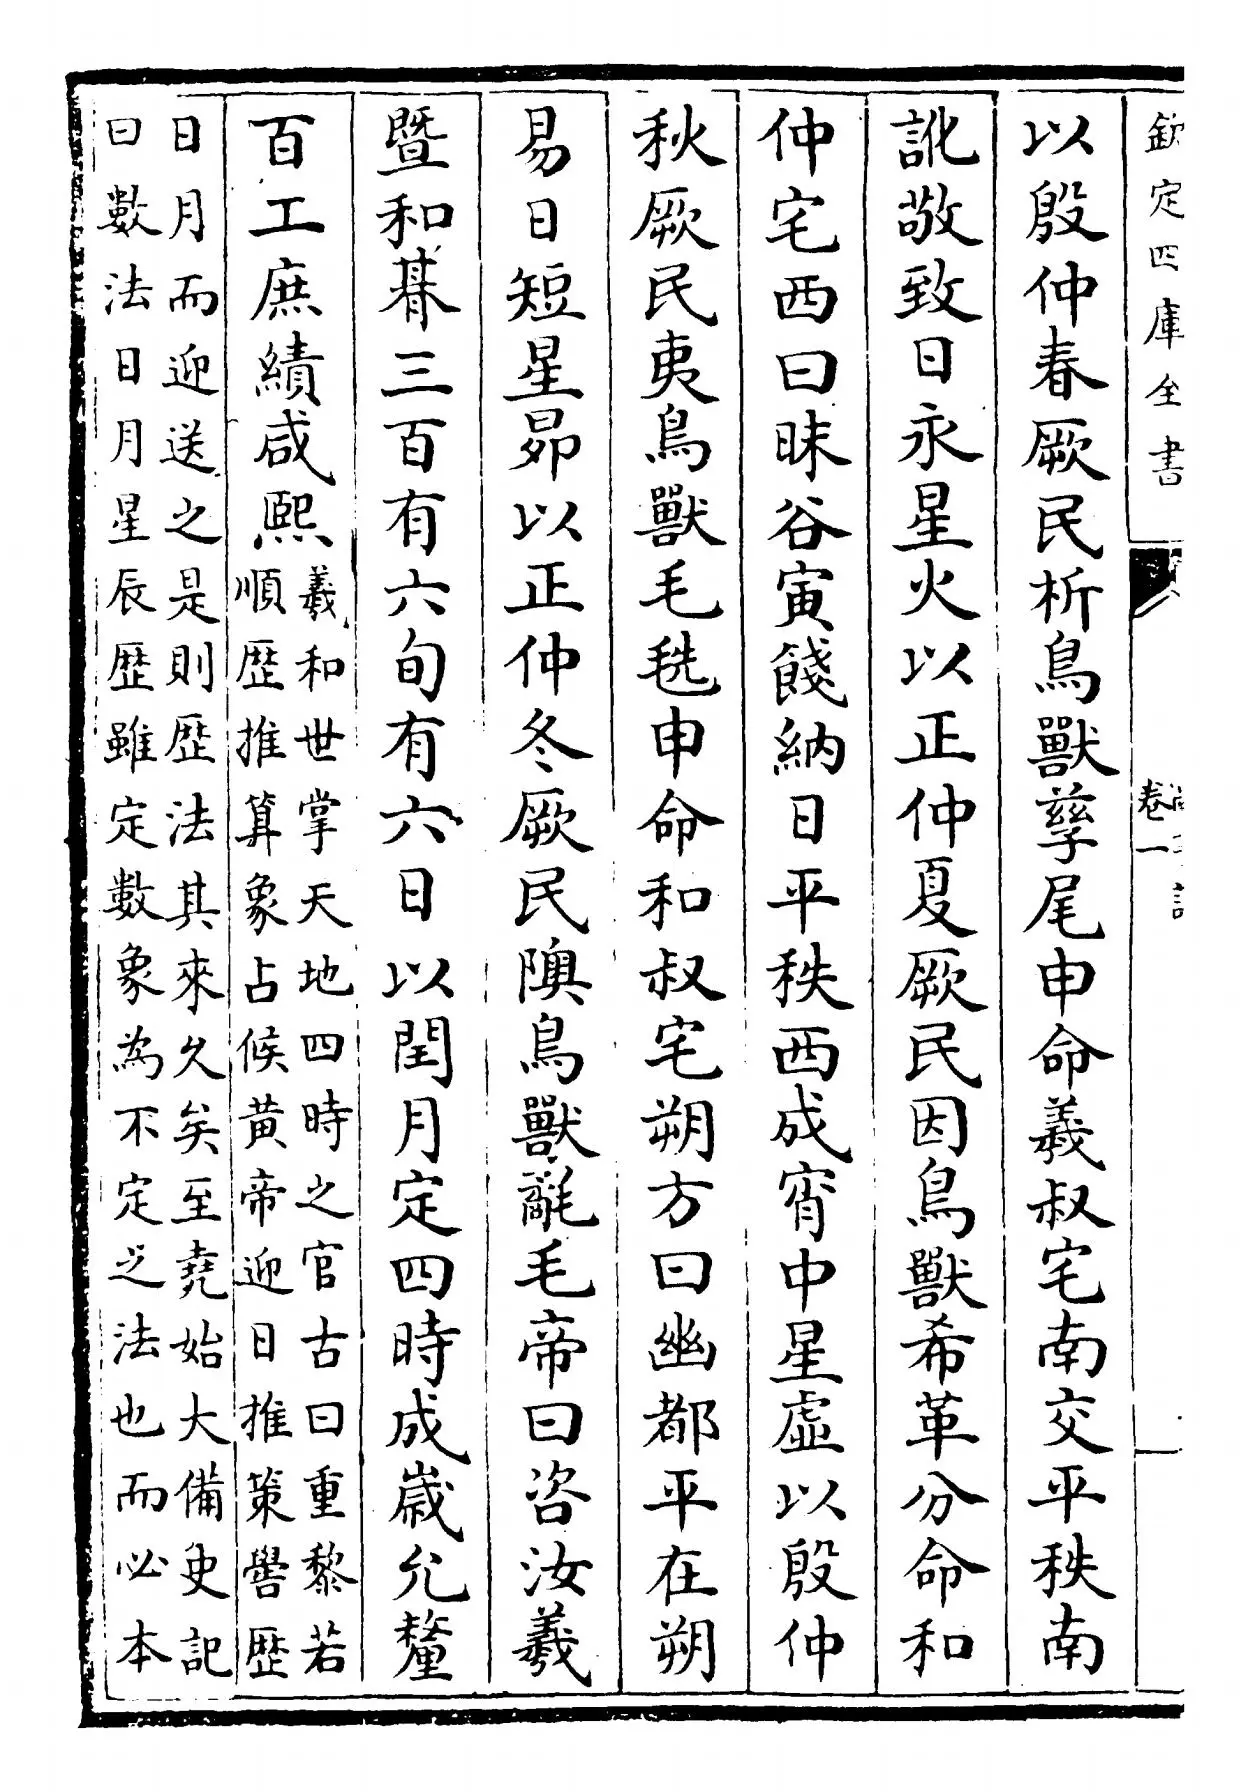 欽定四庫全書
卷一
以殷仲春厥民析鳥獸孳尾申命羲叔宅南交平秩南
訛敬致日永星火以正仲夏厥民因鳥獸希革分命和
仲宅西曰昧谷寅餞納日平秩西成宵中星虛以殷仲
秋厥民夷鳥獸毛毨申命和叔宅朔方曰幽都平在朔
易日短星昴以正仲冬厥民隩鳥獸氄毛帝曰咨汝羲
暨和朞三百有六旬有六日以閏月定四時成歲允釐
百工庶績咸熙
羲和世掌天地四時之官古曰重黎若
順歴推算象占候黃帝迎日推策嚳歴
日月而迎送之是則歴法其來久矣至堯始大備史記
曰數法日月星辰歴雖定數象為不定之法也而必本